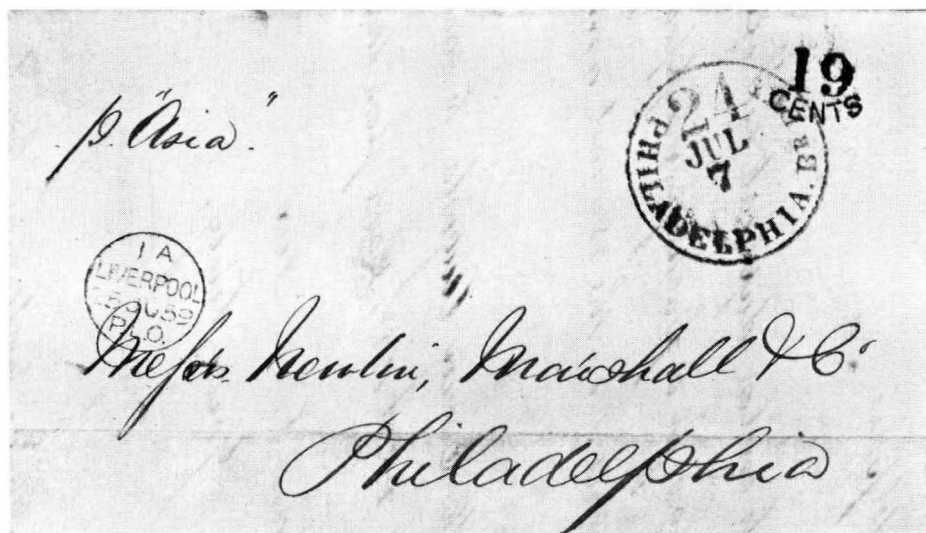 19
CENTS
24
JUL
7
PHILADELPHIA. Br.
p. "Asia".
1 A
LIVERPOOL
JU 59
P.L.O.
Messrs. Newlin, Marshall & Co
Philadelphia